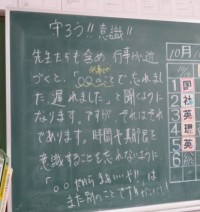 守ろう!!意識!!
先生たちも含め行事が近
づくと、「○○のことで忘れまし
た、遅れました。」と聞くように
なります。ですが、それはそれ
であります。時間や期限を
意識することも忘れないように
「○○だから
は
また別のことですから
10月
1 国
2 社
3 英
4 理
5 英
6 総